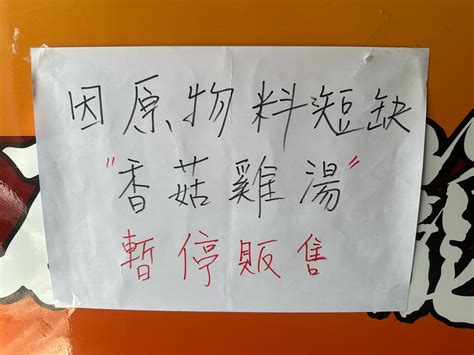 因原物料短缺
"香菇雞湯"
暫停販售